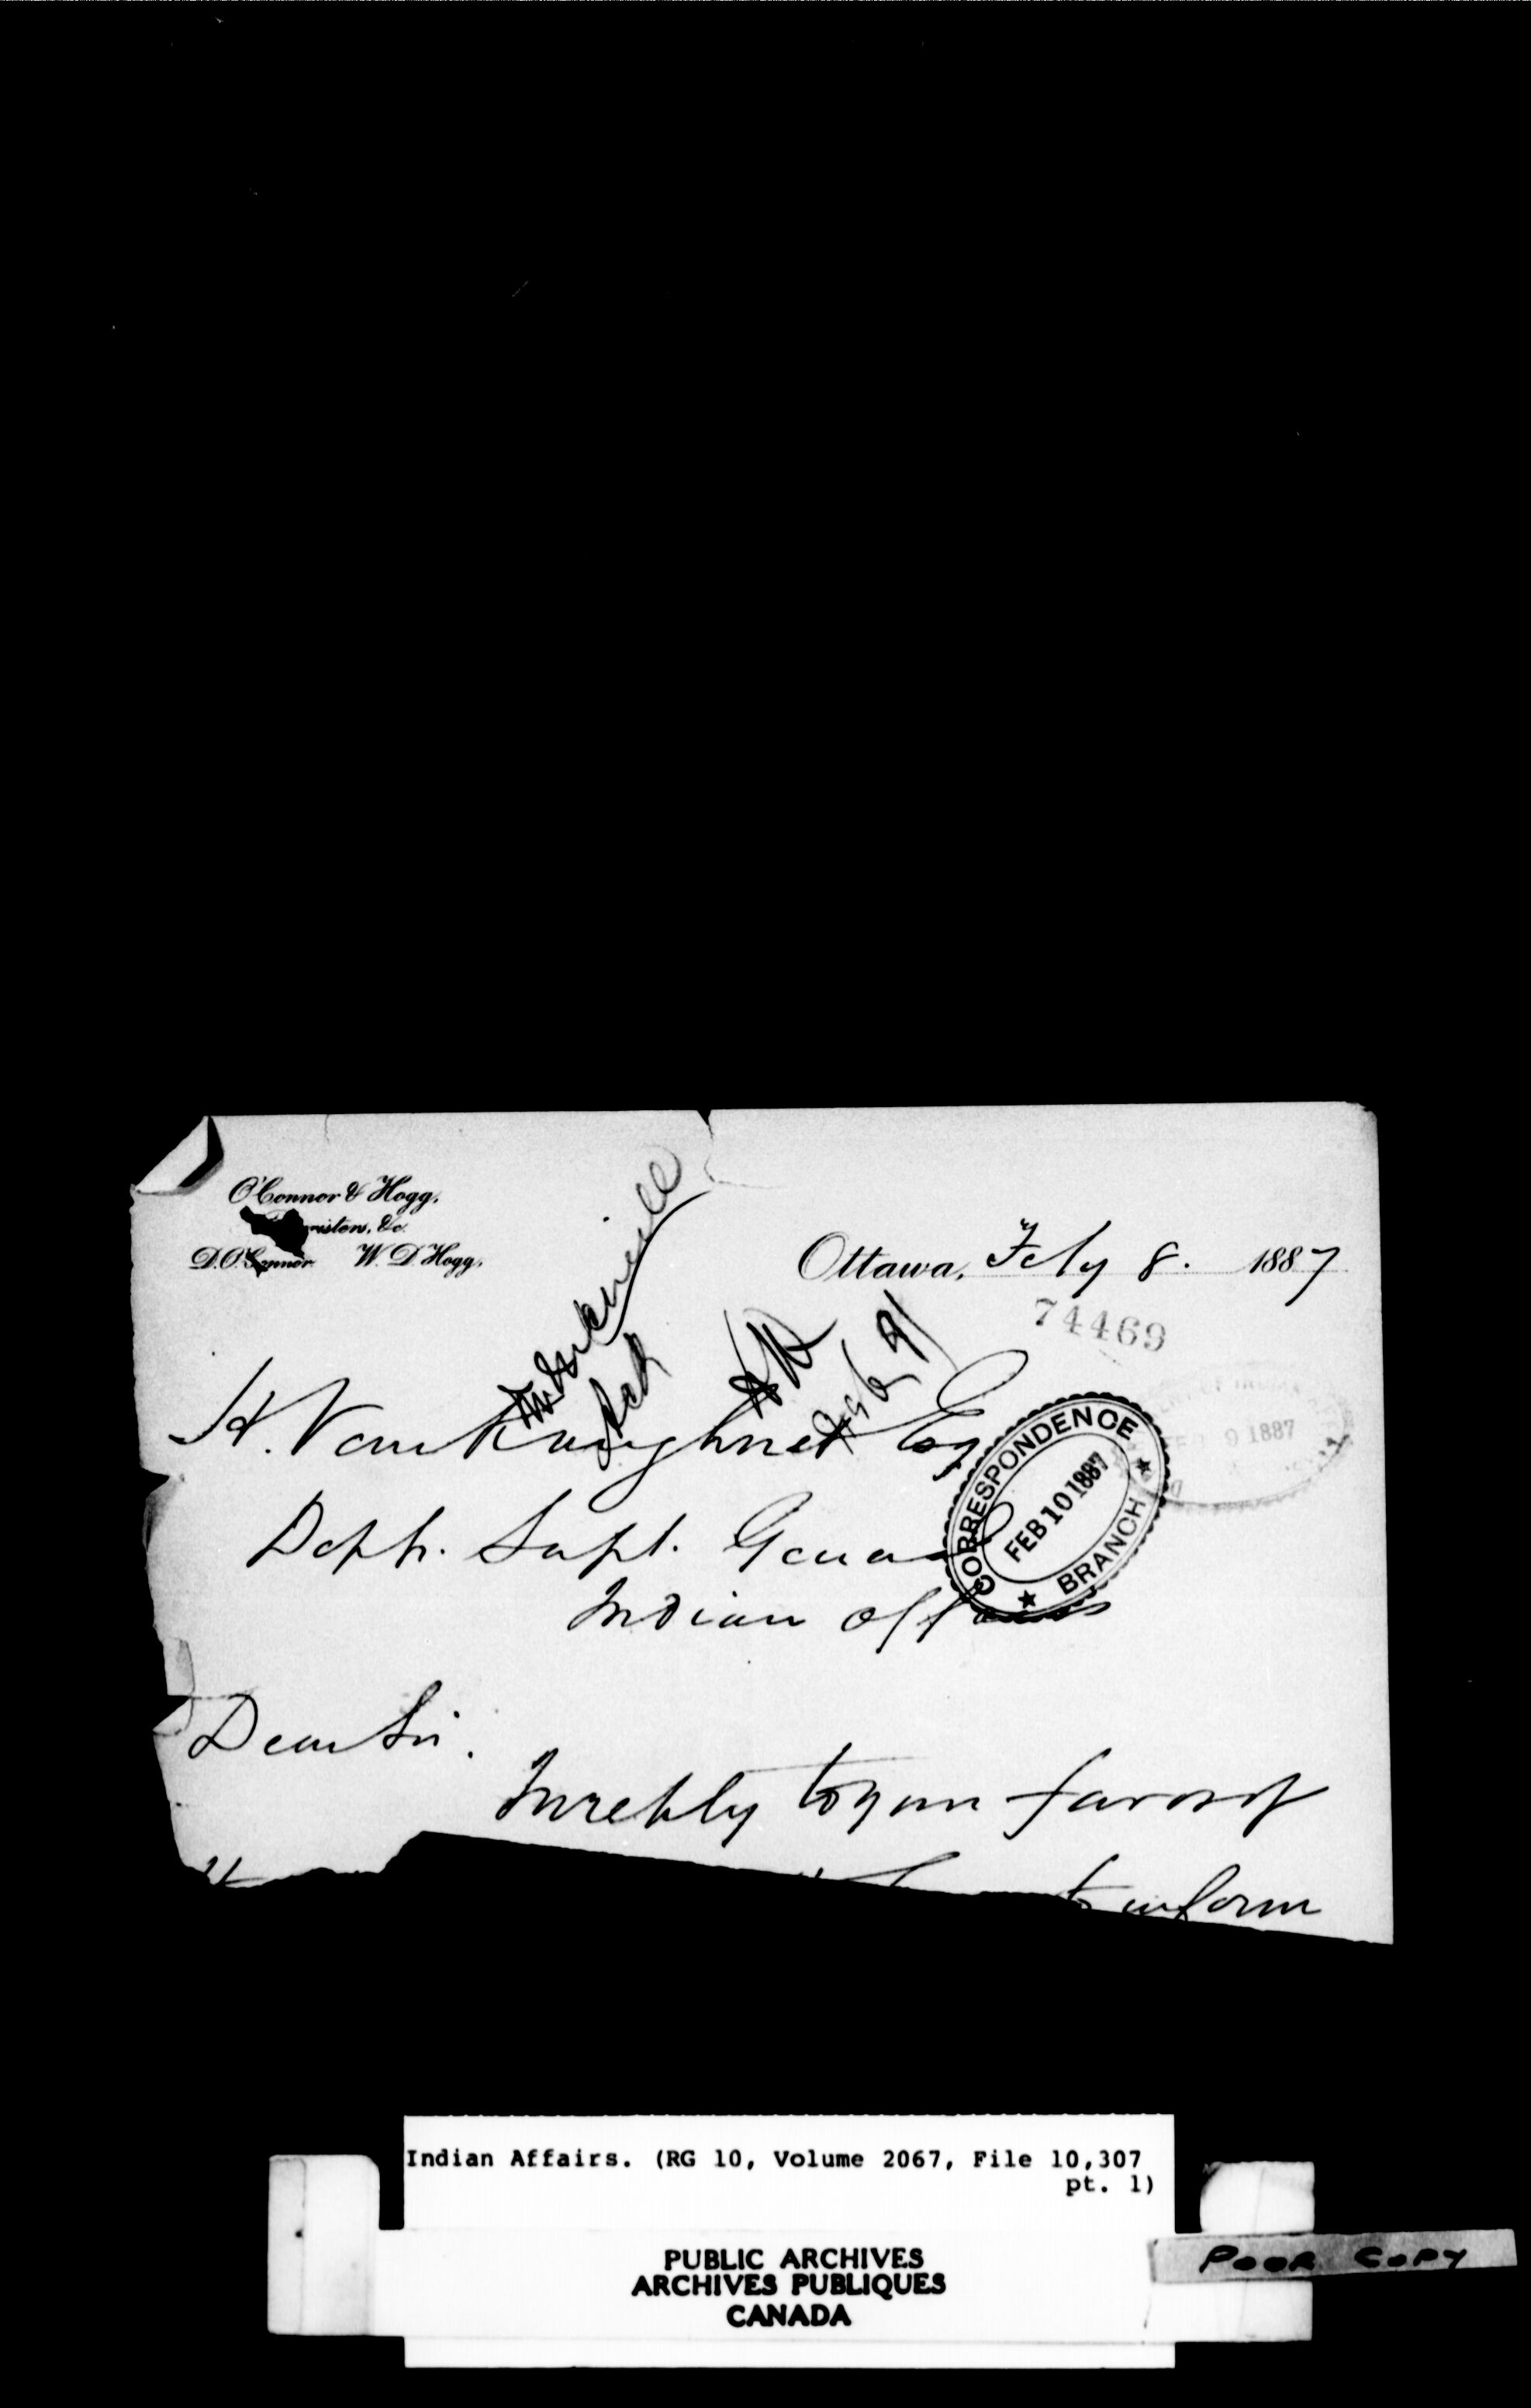 O'Connor & Hogg,
Barristers, &c.
D. O'Connor W. D. Hogg,
Ottawa, Feby 8. 1887
74469
FEB 9 1887
L. Vankoughnet Esq
CORRESPONDENCE
FEB 10 1887
BRANCH
Depty. Supt. General
Indian Affairs
Dear Sir.
In reply to your favor of
to inform
Indian Affairs. (RG 10, Volume 2067, File 10,307
pt. 1)
PUBLIC ARCHIVES
ARCHIVES PUBLIQUES
CANADA
POOR COPY